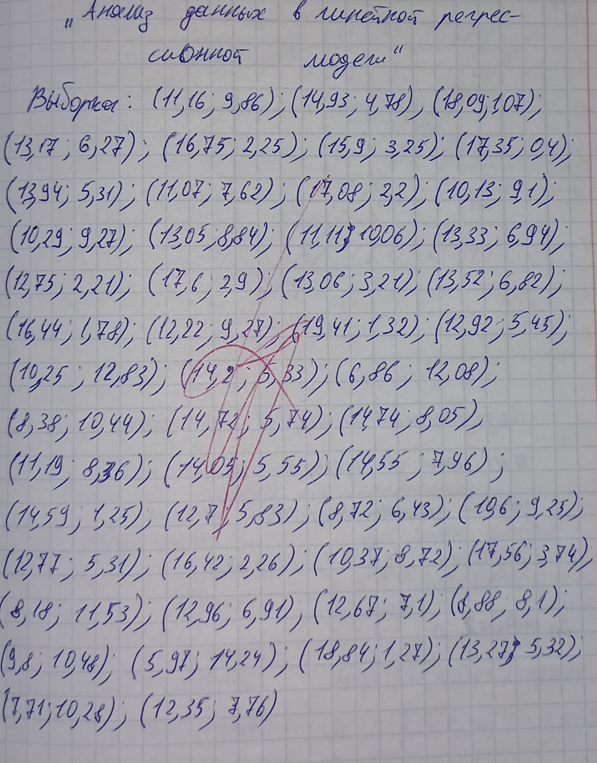 „Анализ данных в линейной регрес-
сионной модели“
Выборка: (11,16; 9,86); (14,93; 4,78); (18,09; 1,07);
(13,17; 6,27); (16,75; 2,25); (15,9; 3,25); (17,35; 0,4);
(13,94; 5,31); (11,07; 7,62); (17,08; 2,2); (10,13; 9,1);
(10,29; 9,27); (13,05; 8,84); (11,11; 10,06); (13,33; 6,94);
(12,75; 2,21); (17,6; 2,9); (13,06; 3,21); (13,52; 6,82);
(16,44; 1,78); (12,22; 9,27); (19,41; 1,32); (12,92; 5,45);
(10,25; 12,83); (14,2; 5,33); (6,86; 12,08);
(8,38; 10,44); (14,72; 5,74); (14,74; 8,05),
(11,19; 8,36); (14,05; 5,55); (14,55; 7,96);
(14,59; 1,25), (12,7; 5,83); (8,72; 6,43); (10,6; 9,25);
(12,77; 5,31); (16,42; 2,26); (10,37; 8,72); (17,56; 3,74);
(8,18; 11,53); (12,96; 6,91), (12,67; 7,1); (8,88; 8,1);
(9,8; 10,48); (5,97; 14,24); (18,84; 1,27); (13,27; 5,32);
(7,71; 10,28); (12,35; 7,76)